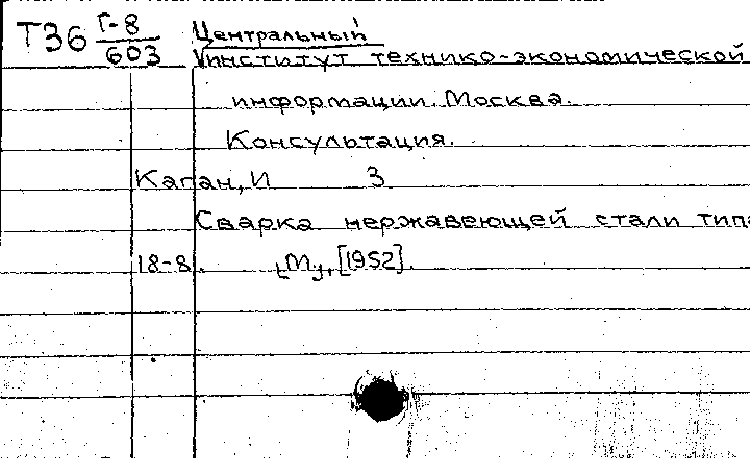 Т36 Г-8 Центральный
603 институт технико-экономической
информации. Москва.
Консультация.
Каган, И З.
Сварка нержавеющей стали типа
18-8. М., [1952].